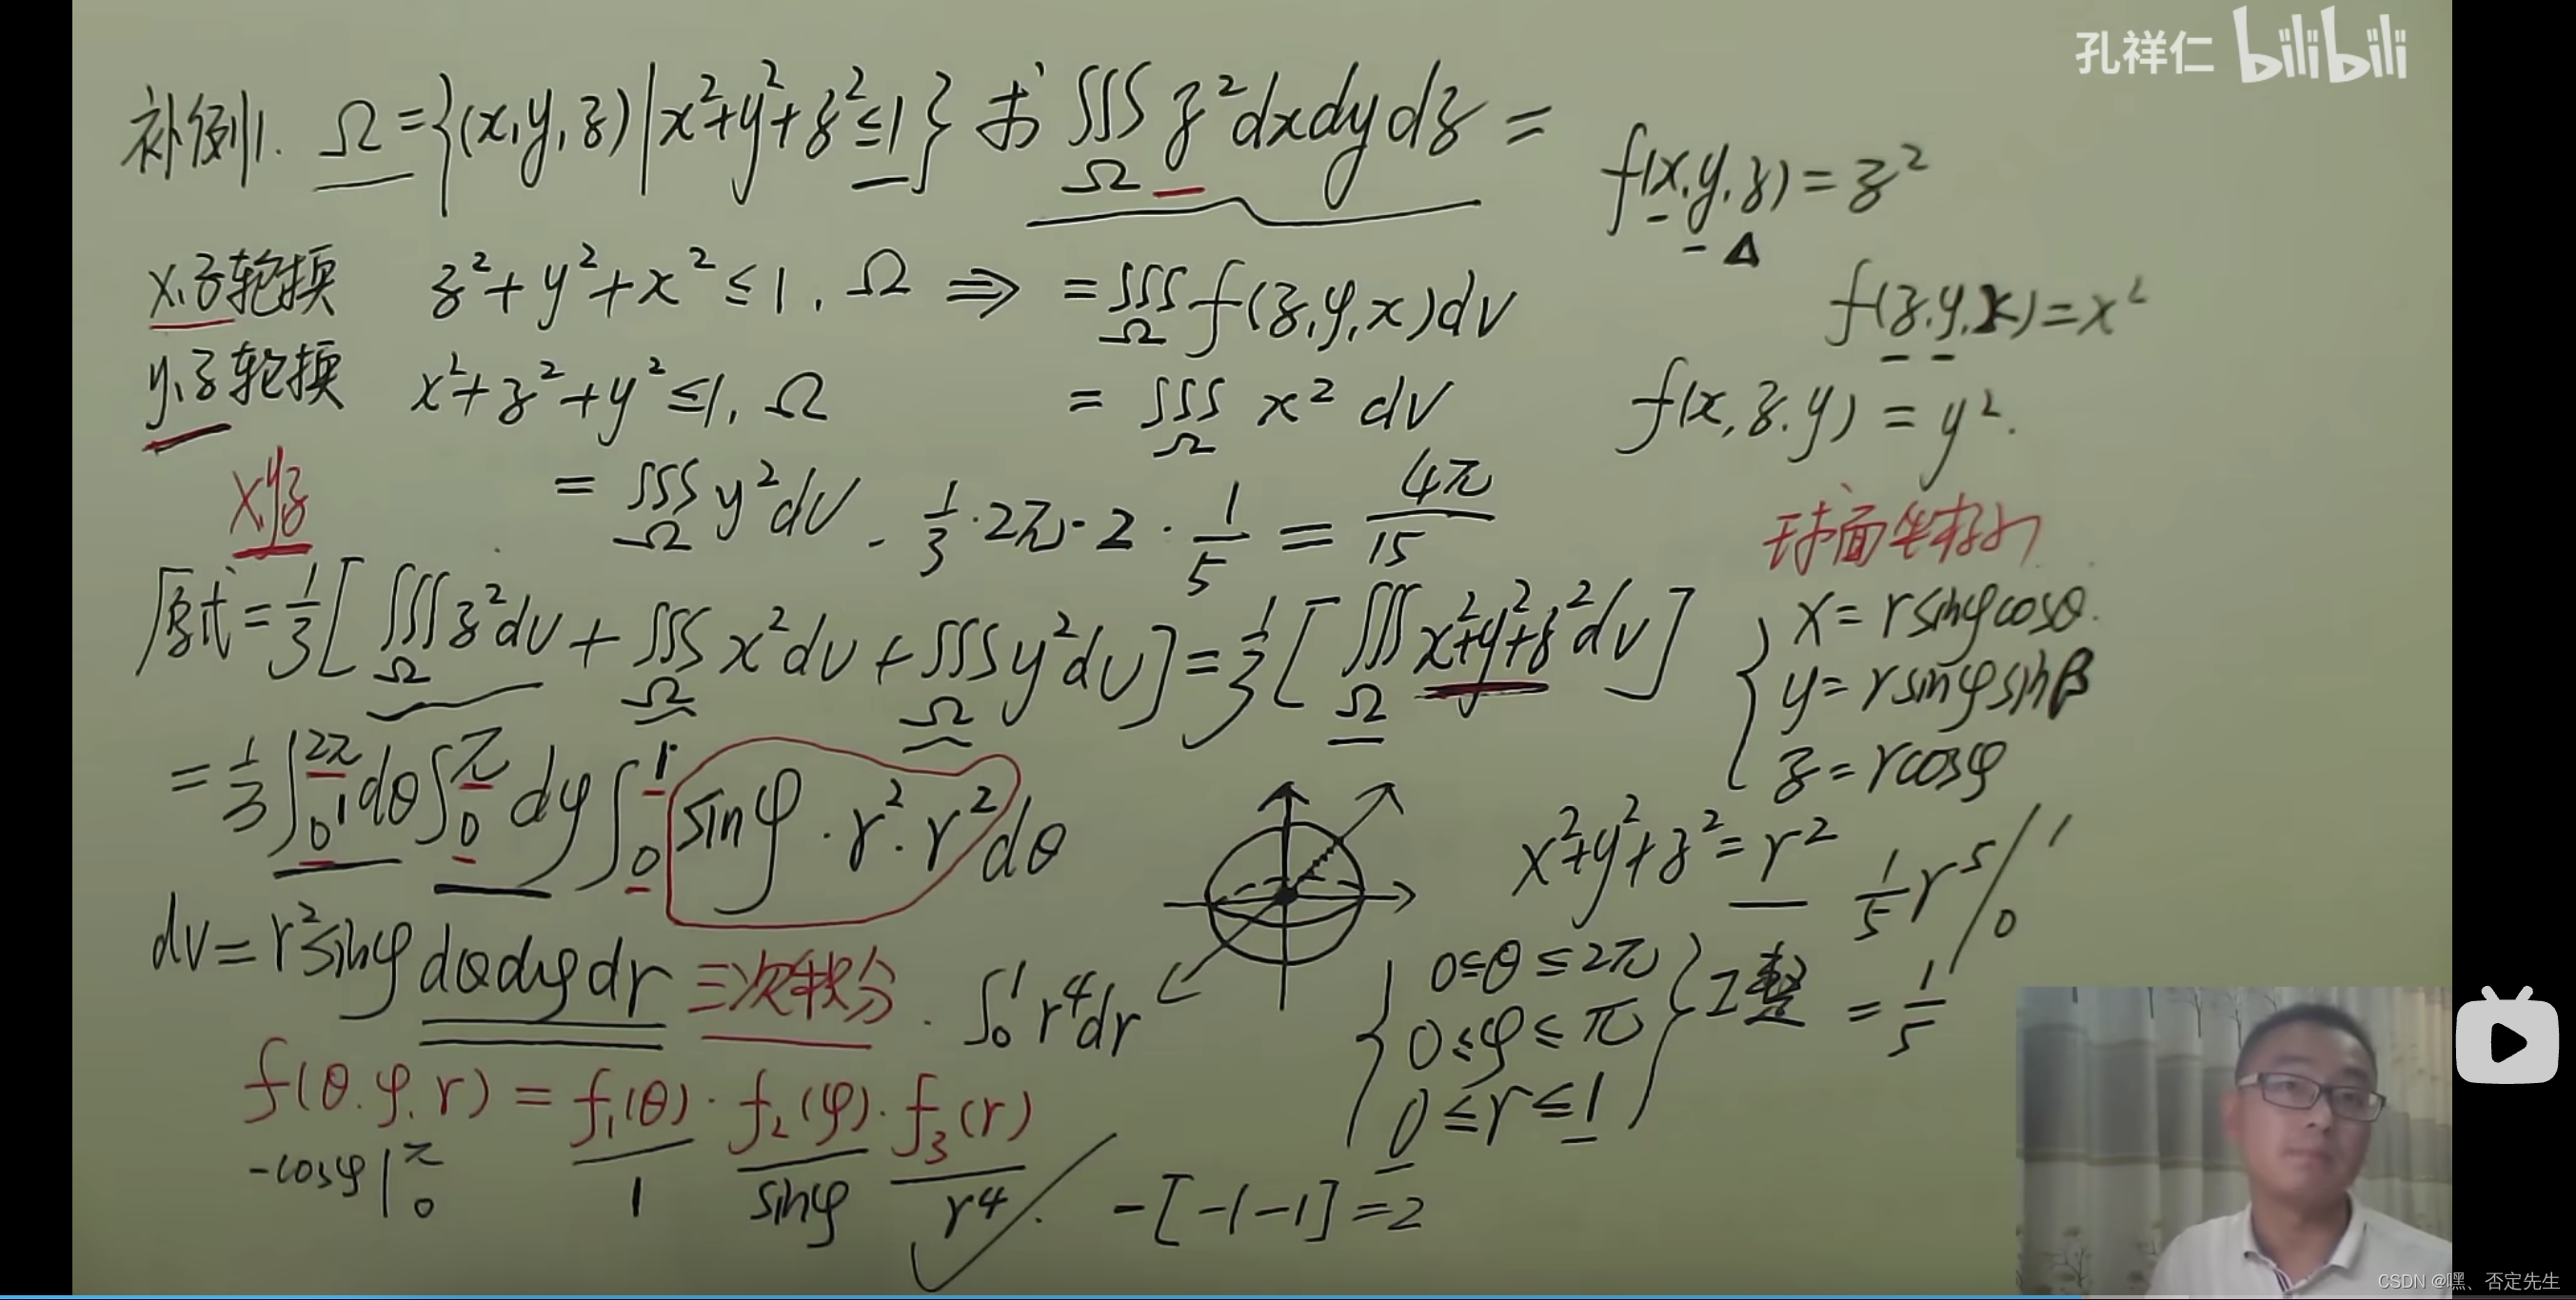 孔祥仁 bilibili
补例1. Ω={(x,y,z)|x²+y²+z²≤1} 求 ∭_Ω z²dxdydz =
f(x,y,z)=z²
x,z轮换 z²+y²+x²≤1, Ω ⇒ =∭_Ω f(z,y,x)dv
f(z,y,x)=x²
y,z轮换 x²+z²+y²≤1, Ω = ∭_Ω x² dv
f(x,z,y)=y².
x,y,z
= ∭_Ω y²dv
1/3·2π·2·1/5=4π/15
球面坐标
原式=1/3[∭_Ω z²dv+∭_Ω x²dv+∭_Ω y²dv]=1/3[∭_Ω x²+y²+z²dv]
x=rsinφcosθ.
y=rsinφsinθ
z=rcosφ
=1/3∫_0^2π 1dθ∫_0^π dφ∫_0^1 sinφ·r²·r²dθ
x²+y²+z²=r²
1/5r⁵|_0^1
=1/5
dv=r²sinφdθdφdr 三次积分
∫_0^1 r⁴dr
0≤θ≤2π
0≤φ≤π
0≤r≤1
f(θ.φ.r)=f₁(θ)·f₂(φ)·f₃(r)
1 sinφ r⁴.
-cosφ|_0^π
-[-1-1]=2
CSDN @嘿、否定先生